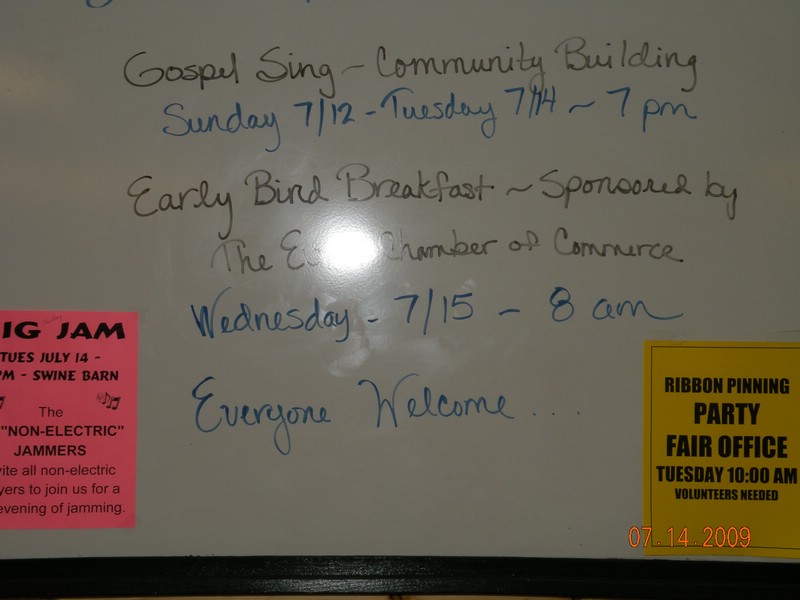 Gospel Sing - Community Building
Sunday 7/12 - Tuesday 7/14 ~ 7 pm
Early Bird Breakfast ~ Sponsored by
The Chamber of Commerce
Wednesday - 7/15 - 8 am
Everyone Welcome....
IG JAM
TUES JULY 14 -
PM - SWINE BARN
The
"NON-ELECTRIC"
JAMMERS
vite all non-electric
yers to join us for a
evening of jamming.
RIBBON PINNING
PARTY
FAIR OFFICE
TUESDAY 10:00 AM
VOLUNTEERS NEEDED
07.14.2009